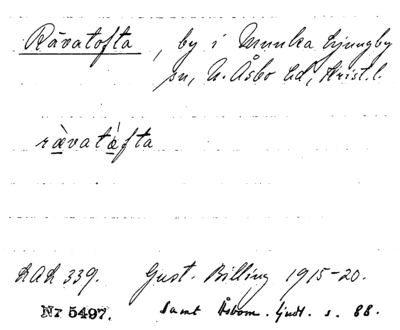 Rävatofta, by i Munka Ljungby
sn, N. Åsbo hd, Krist. l.
rävatåfta
LAL 339. Gust. Billing 1915-20.
Nr 5497. Samt Åsbom. ljudl. s. 88.